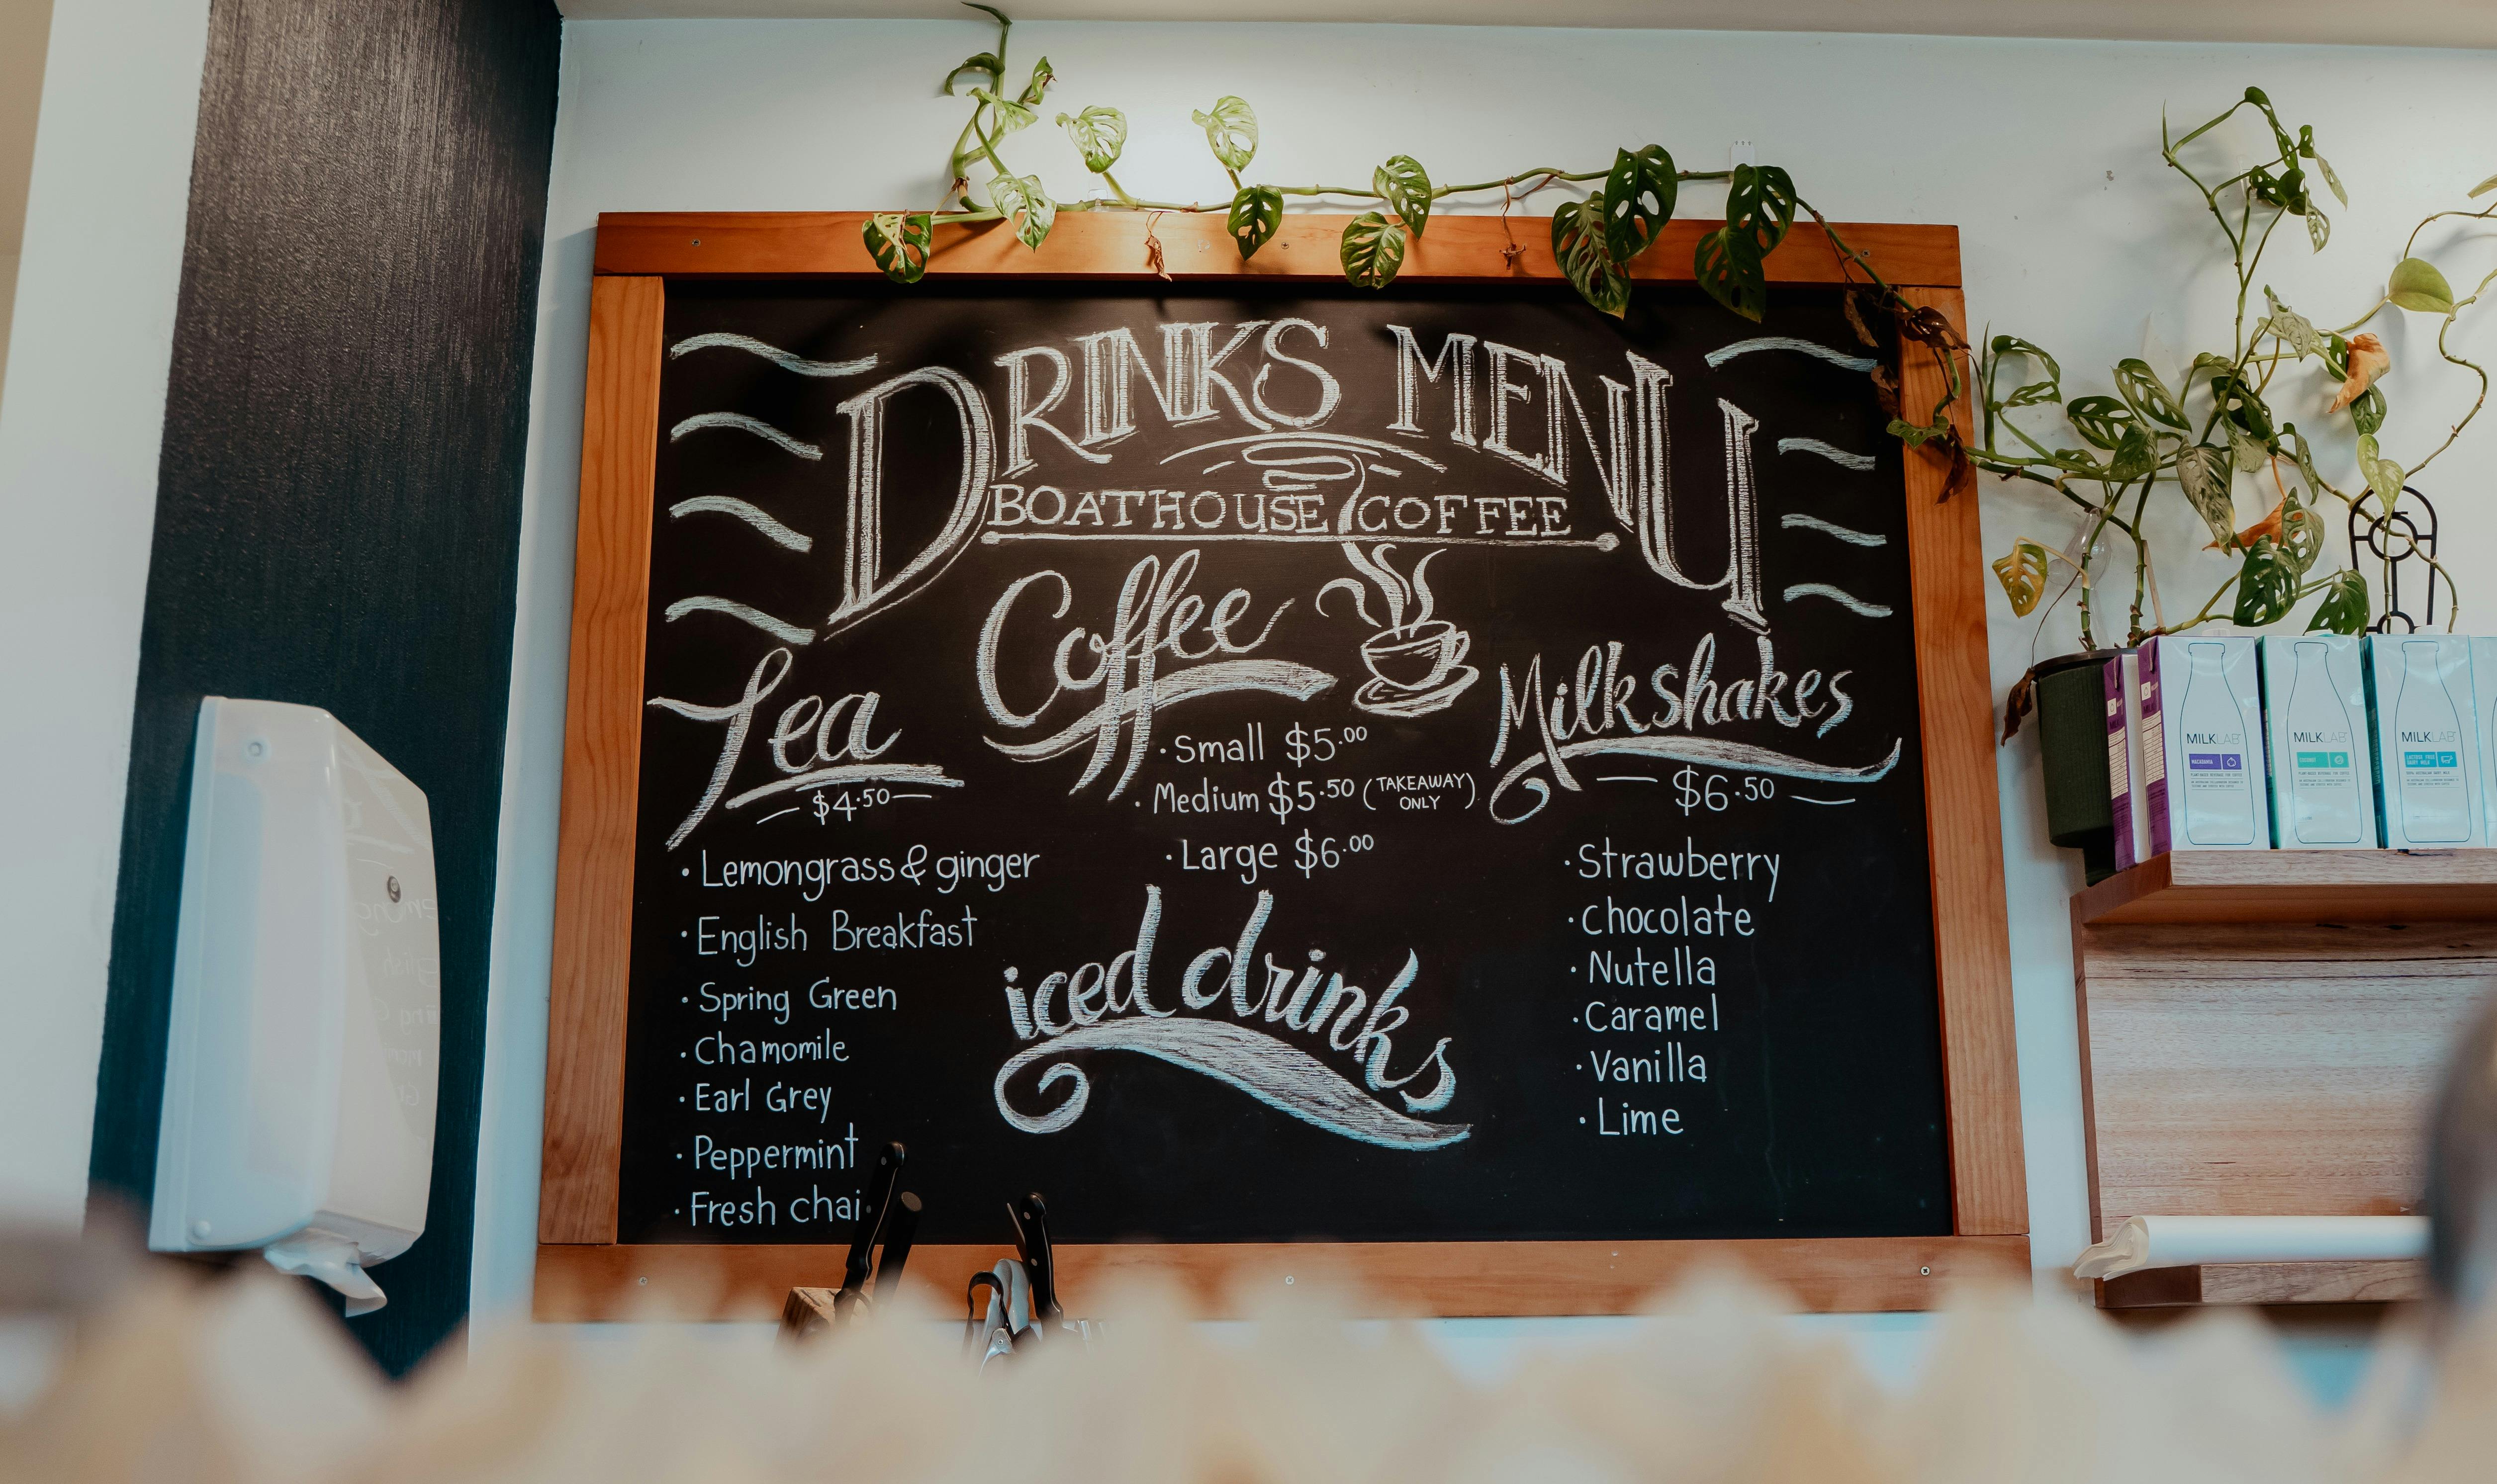 DRINKS MENU
BOATHOUSE COFFEE
Tea
$4.50
· Lemongrass & ginger
· English Breakfast
· Spring Green
· Chamomile
· Earl Grey
· Peppermint
· Fresh chai
Coffee
· Small $5.00
· Medium $5.50 (TAKEAWAY ONLY)
· Large $6.00
iced drinks
Milkshakes
$6.50
· Strawberry
· Chocolate
· Nutella
· Caramel
· Vanilla
· Lime
MILKLAB
MACADAMIA
MILKLAB
COCONUT
MILKLAB
LACTOSE FREE
DAIRY MILK